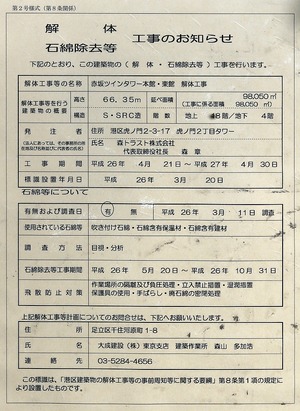 第2号様式（第8条関係）
解体
石綿除去等
工事のお知らせ
下記のとおり、この建築物の（ 解 体 ・ 石綿除去等 ）工事を行います。
解体工事等の名称 赤坂ツインタワー本館・東館 解体工事
解体工事等を行う建築物の概要 高さ 66.35m 延べ面積 98,050㎡
（工事に係る面積 98,050 ㎡）
構造 S・SRC造 階数 地上 18階／地下 4階
発注者 住所 港区虎ノ門2-3-17 虎ノ門2丁目タワー
（法人にあっては、その事務所の所在地及び名称並びに代表者の氏名）
氏名 森トラスト株式会社
代表取締役社長 森 章
工事期間 平成 26年 4月 21日 ～ 平成 27年 4月 30日
標識設置年月日 平成 26年 3月 20日
石綿等について
有無および調査日 有 無 平成 26年 3月 11日 調査
使用されている石綿等 吹き付け石綿・石綿含有保温材・石綿含有建材
調査方法 目視・分析
石綿除去等工事期間 平成 26年 5月 20日 ～ 平成 26年 10月 31日
飛散防止対策 作業場所の隔離及び負圧処理・立入禁止措置・湿潤措置
保護具の使用・手ばらし・廃石綿の密閉処理
上記解体工事等計画についてのお問合せは、下記へお願いします。
住所 足立区千住河原町1-8
氏名 大成建設（株）東京支店 建築作業所 森山 多加浩
連絡先 03-5284-4656
この標識は、「港区建築物の解体工事等の事前周知等に関する要綱」第8条第1項の規定により設置したものです。